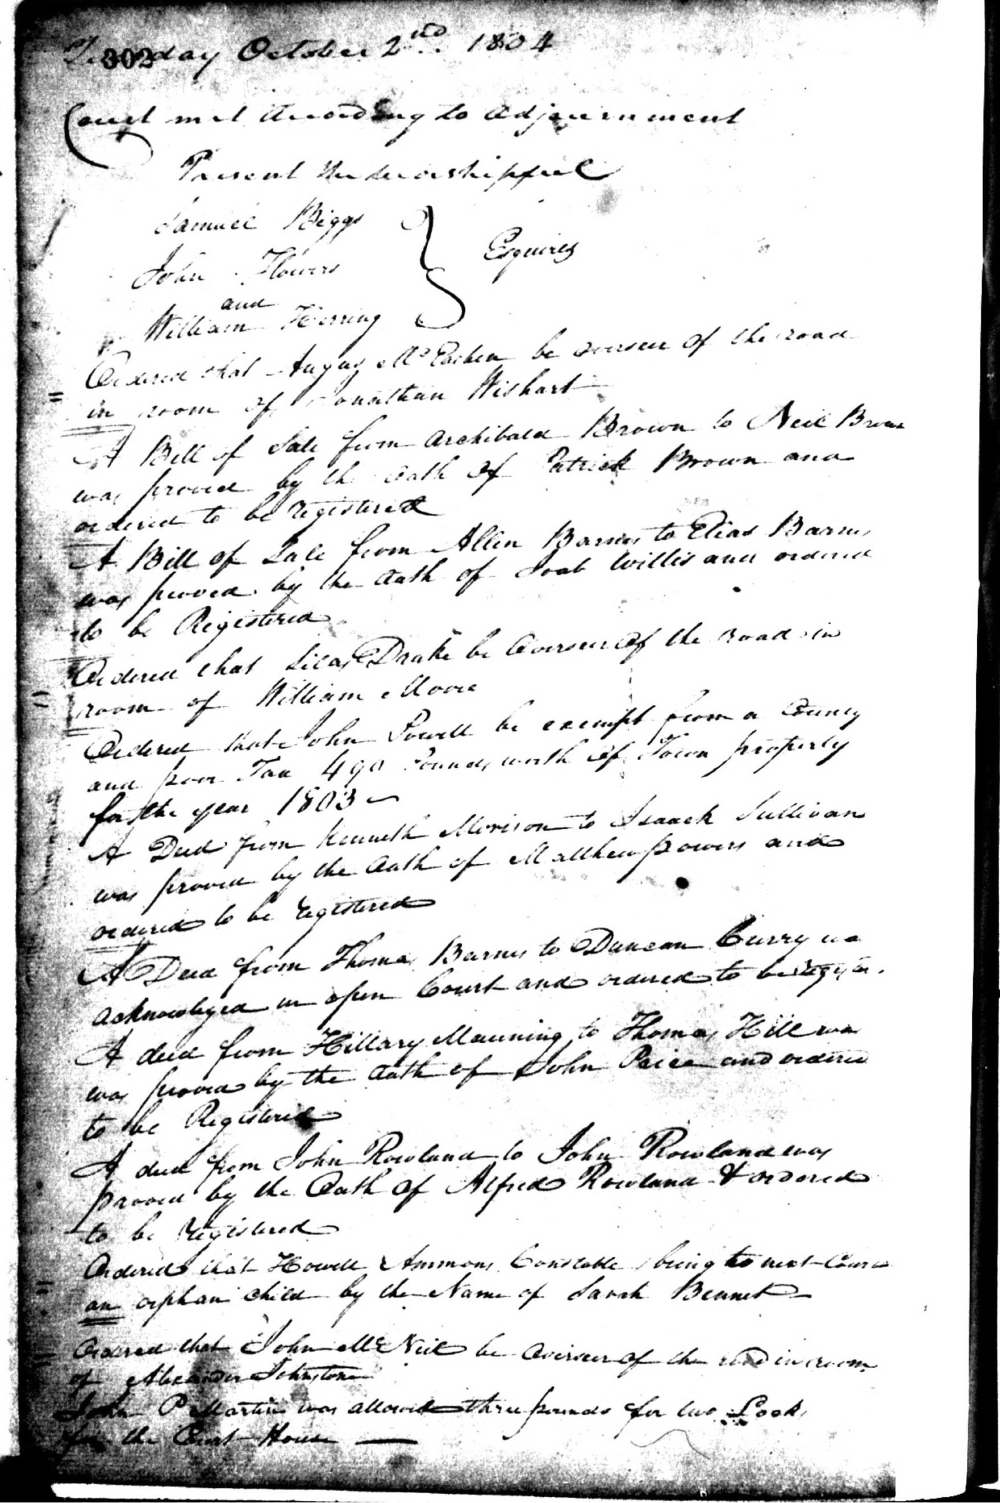 302
Tuesday October 2nd 1804
Court met According to adjournment
Present the worshipful
Samuel Biggs
John Flowers
and
William Herring
Esquires
Ordered that Angus McEachen be overseer of the road
in room of Jonathan Wishart
A Bill of Sale from Archibald Brown to Neil Brown
was proved by the Oath of Patrick Brown and
ordered to be registered
A Bill of Sale from Allen Barnes to Elias Barnes
was proved by the Oath of Joab Willis and ordered
to be Registered
Ordered that Silas Drake be Overseer of the road in
room of William Moore
Ordered that John Powell be exempt from a County
and poor Tax 490 Pounds worth of Town property
for the year 1803
A Deed from Kenneth Morison to Isaack Sullivan
was proved by the Oath of Matthew Powers and
ordered to be registered
A Deed from Thomas Barnes to Duncan Curry was
acknowleged in open Court and ordered to be register
A deed from Hillary Manning to Thomas Hill was
was proved by the Oath of John Price and ordered
to be Registered
A deed from John Rowland to John Rowland was
proved by the Oath of Alfred Rowland & ordered
to be registered
Ordered that Howell Ammons Constable bring to next Court
an orphan child by the Name of Sarah Bennet
Ordered that John McNeil be overseer of the road in room
of Alexander Johnston
John P Martin was allowed three pounds for two Locks
for the Court House